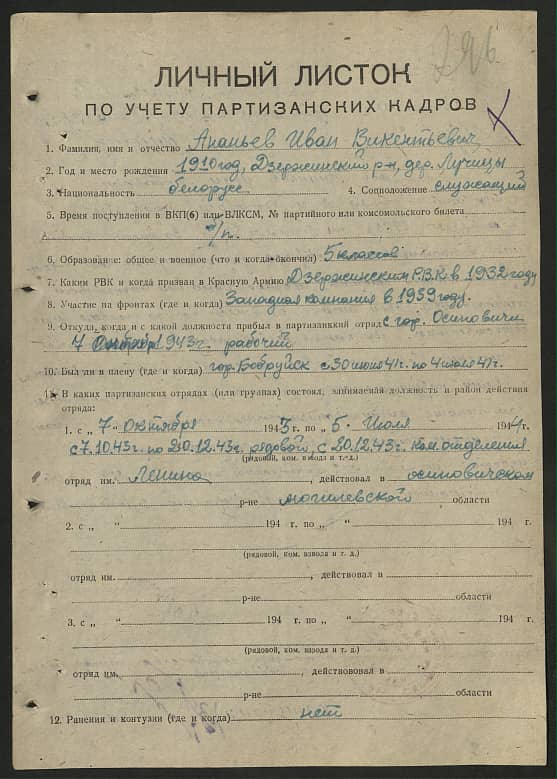 296
ЛИЧНЫЙ ЛИСТОК
ПО УЧЕТУ ПАРТИЗАНСКИХ КАДРОВ
1. Фамилия, имя и отчество Ананьев Иван Викентьевич
2. Год и место рождения 1910 год, Дзержинский р-н, дер. Лучицы
3. Национальность белорусс 4. Соцположение служащий
5. Время поступления в ВКП(б) или ВЛКСМ, № партийного или комсомольского билета
б/п.
6. Образование: общее и военное (что и когда окончил) 5 классов
7. Каким РВК и когда призван в Красную Армию Дзержинским Р.В.К. в 1932 году
8. Участие на фронтах (где и когда) Западная компания в 1939 году.
9. Откуда, когда и с какой должности прибыл в партизанский отряд с гор. Осиповичи
7 октября 1943 г. рабочий
10. Был ли в плену (где и когда) гор. Бобруйск с 30 июня 41 г. по 4 июля 41 г.
11. В каких партизанских отрядах (или группах) состоял, занимаемая должность и район действия
отряда:
1. с „ 7 “ октября 1943 г. по „ 5 “ Июля 1944 г.
с 7.10.43 г. по 20.12.43 г. рядовой, с 20.12.43 г. ком. отделения
(рядовой, ком. взвода и т. д.)
отряд им. Ленина, действовал в осиповическом
р-не могилевского области
2. с „ “ 194 г. по „ “ 194 г.
(рядовой, ком. взвода и т. д.)
отряд им. , действовал в
р-не области
3. с „ “ 194 г. по „ “ 194 г.
(рядовой, ком. взвода и т. д.)
отряд им. , действовал в
р-не области
12. Ранения и контузии (где и когда) нет